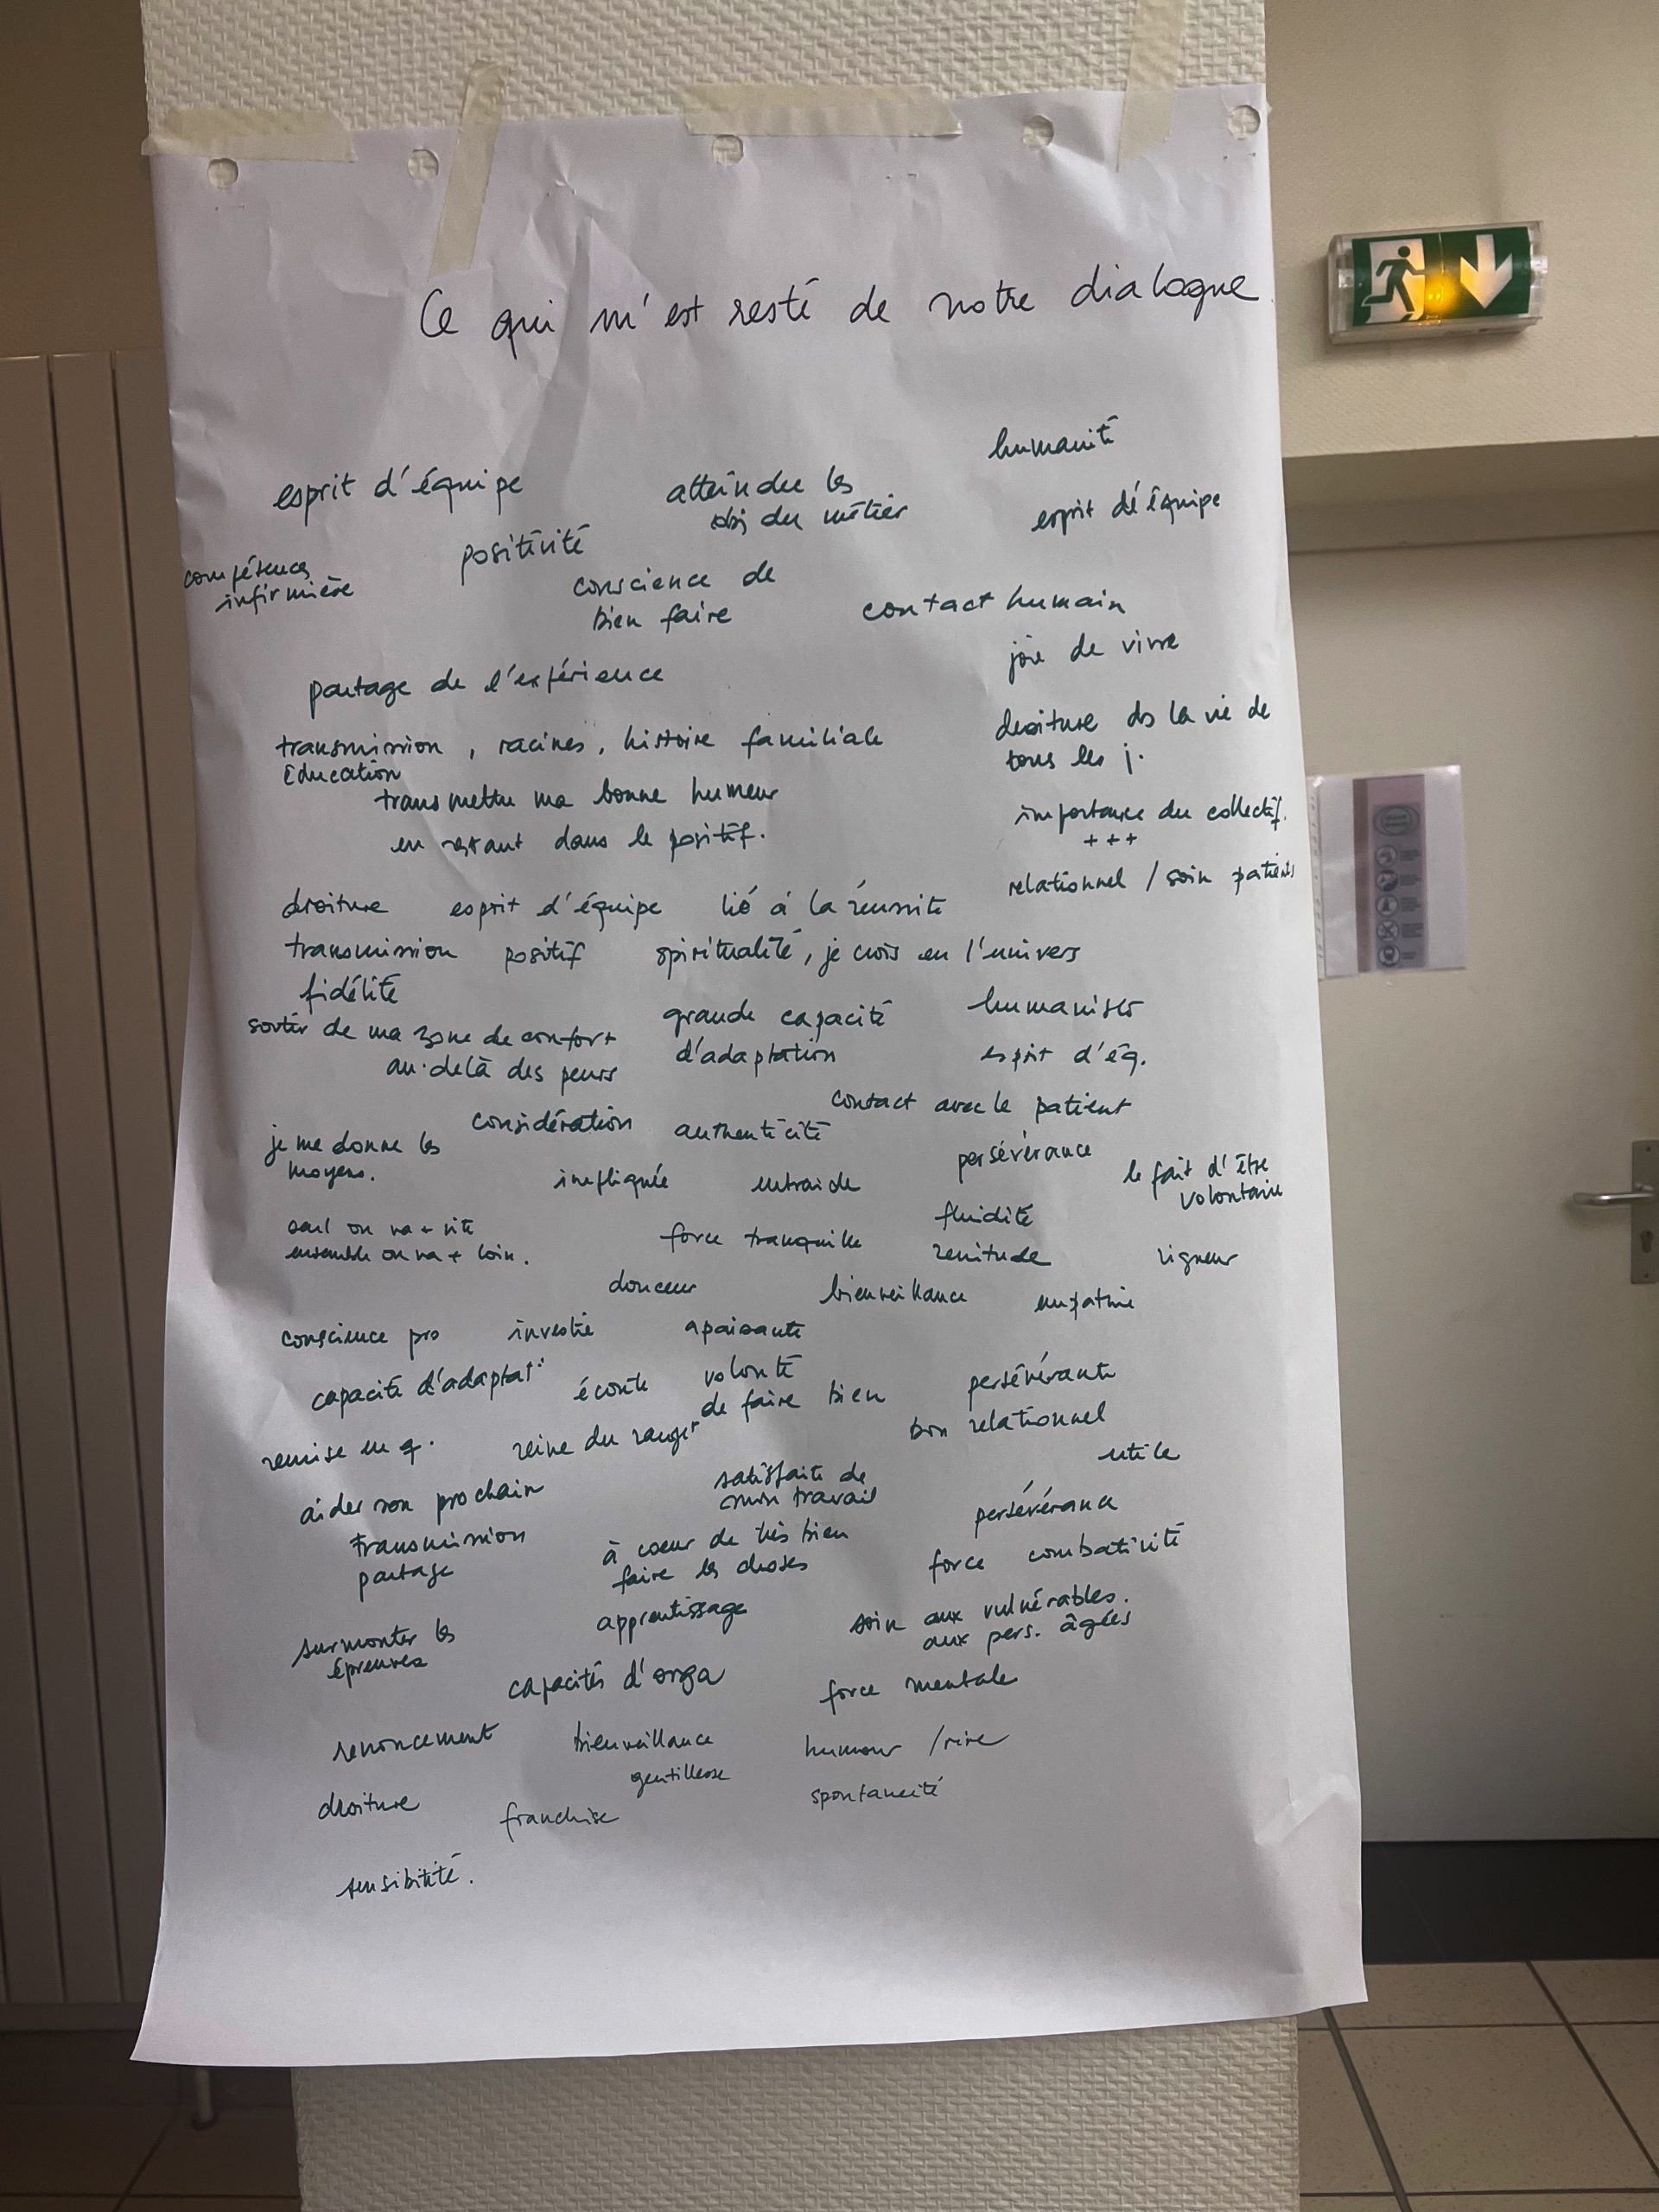 Ce qui m'est resté de notre dialogue
humanité
esprit d'équipe
atteindre les
obj du métier
esprit d'équipe
positivité
compétences
infirmière
conscience de
bien faire
contact humain
joie de vivre
partage de l'expérience
droiture ds la vie de
tous les j.
transmission, racines, histoire familiale
éducation
transmettre ma bonne humeur
en restant dans le positif.
importance du collectif.
+++
relationnel / soin patients
droiture esprit d'équipe lié à la réussite
transmission positif spiritualité, je crois en l'univers
fidélité
sortir de ma zone de confort
au-delà des peurs
grande capacité
d'adaptation
humaniser
esprit d'éq.
contact avec le patient
considération authenticité
je me donne les
moyens.
persévérance
le fait d'être
volontaire
impliquée entraide
seul on va + vite
ensemble on va + loin.
force tranquille
fluidité
zenitude
rigueur
douceur bienveillance empathie
conscience pro investie apaisante
capacité d'adaptat°
écoute
volonté
de faire bien
persévérante
bon relationnel
remise en q. reine du rangt
utile
aider son prochain
satisfaite de
mon travail
persévérance
transmission
partage
à coeur de très bien
faire les choses
force combativité
apprentissage
soin aux vulnérables.
aux pers. âgées
surmonter les
épreuves
capacités d'orga
force mentale
renoncement bienveillance humour / rire
gentillesse
droiture franchise spontanéité
sensibilité.